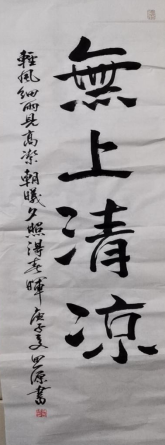 無上清涼
輕風細雨見高潔朝曦夕照得春暉庚子夏
書